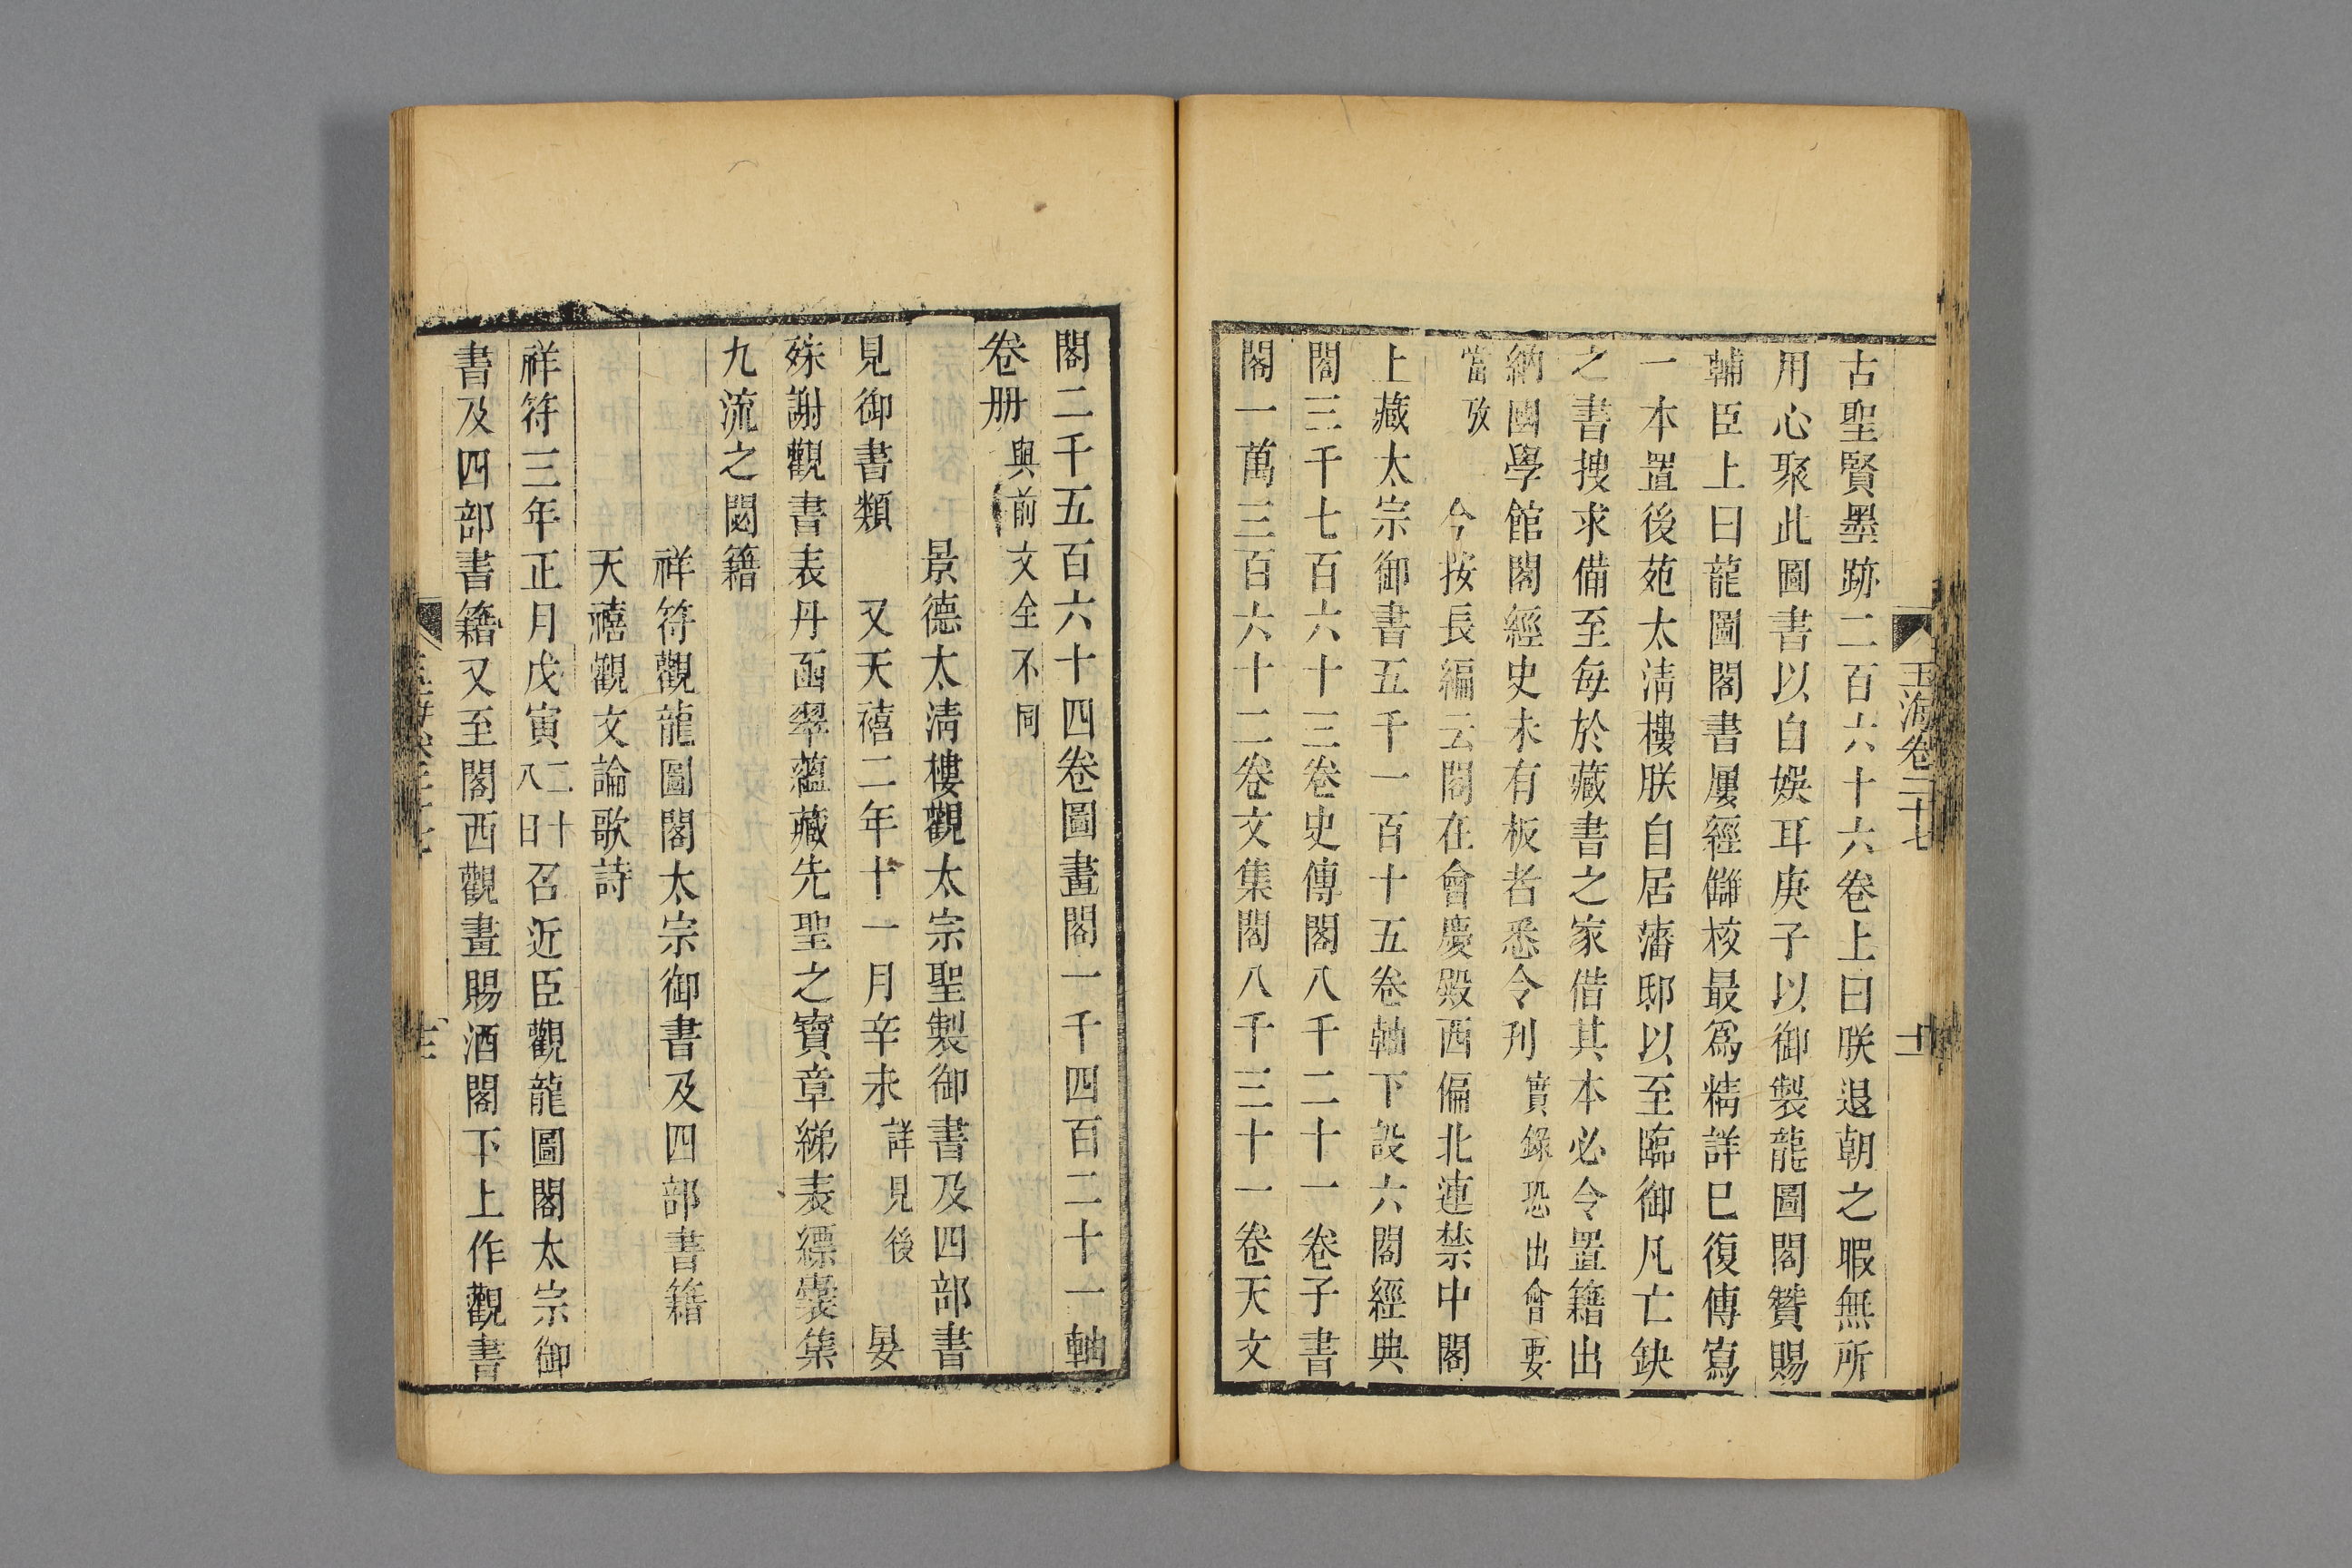 玉海卷二十七
十二
古聖賢墨跡二百六十六卷上曰朕退朝之暇無所
用心聚此圖書以自娛耳庚子以御製龍圖閣贊賜
輔臣上曰龍圖閣書屢經讎校最爲精詳已復傳寫
一本置後苑太淸樓朕自居藩邸以至臨御凡亡缺
之書搜求備至每於藏書之家借其本必令置籍出
納國學館閣經史未有板者悉令刋實錄恐出會要
當攷　今按長編云閣在會慶殿西偏北連禁中閣
上藏太宗御書五千一百十五卷軸下設六閣經典
閣三千七百六十三卷史傳閣八千二十一卷子書
閣一萬三百六十二卷文集閣八千三十一卷天文
閣二千五百六十四卷圖畫閣一千四百二十一軸
卷册與前文全不同
景德太淸樓觀太宗聖製御書及四部書
見御書類　又天禧二年十一月辛未詳見後　晏
殊謝觀書表丹函翠蘊藏先聖之寶章綈表縹囊集
九流之閟籍
祥符觀龍圖閣太宗御書及四部書籍
天禧觀文論歌詩
祥符三年正月戊寅二十八日召近臣觀龍圖閣太宗御
書及四部書籍又至閣西觀畫賜酒閣下上作觀書